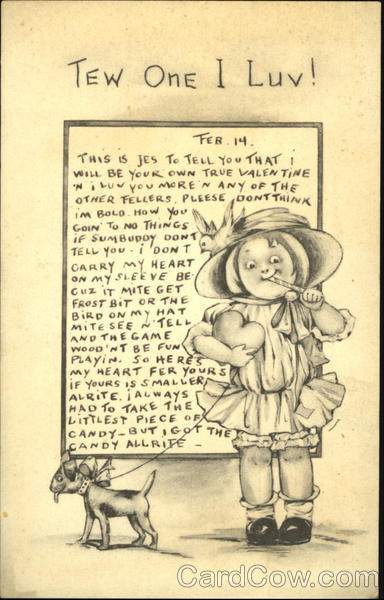 TEW ONE I LUV!
FEB. 14.
THIS IS JES TO TELL YOU THAT I
WILL BE YOUR OWN TRUE VALENTINE
'N I LUV YOU MORE 'N ANY OF THE
OTHER FELLERS. PLEESE DONT THINK
IM BOLD. HOW YOU
GOIN' TO NO THINGS
IF SUMBUDDY DONT
TELL YOU - I DON'T
CARRY MY HEART
ON MY SLEEVE BE-
CUZ IT MITE GET
FROST BIT OR THE
BIRD ON MY HAT
MITE SEE 'N' TELL
AND THE GAME
WOOD'NT BE FUN
PLAYIN. SO HERES
MY HEART FER YOURS
IF YOURS IS SMALLER
ALRITE. I ALWAYS
HAD TO TAKE THE
LITTLEST PIECE OF
CANDY - BUT I GOT THE
CANDY ALLRITE -
CardCow.com